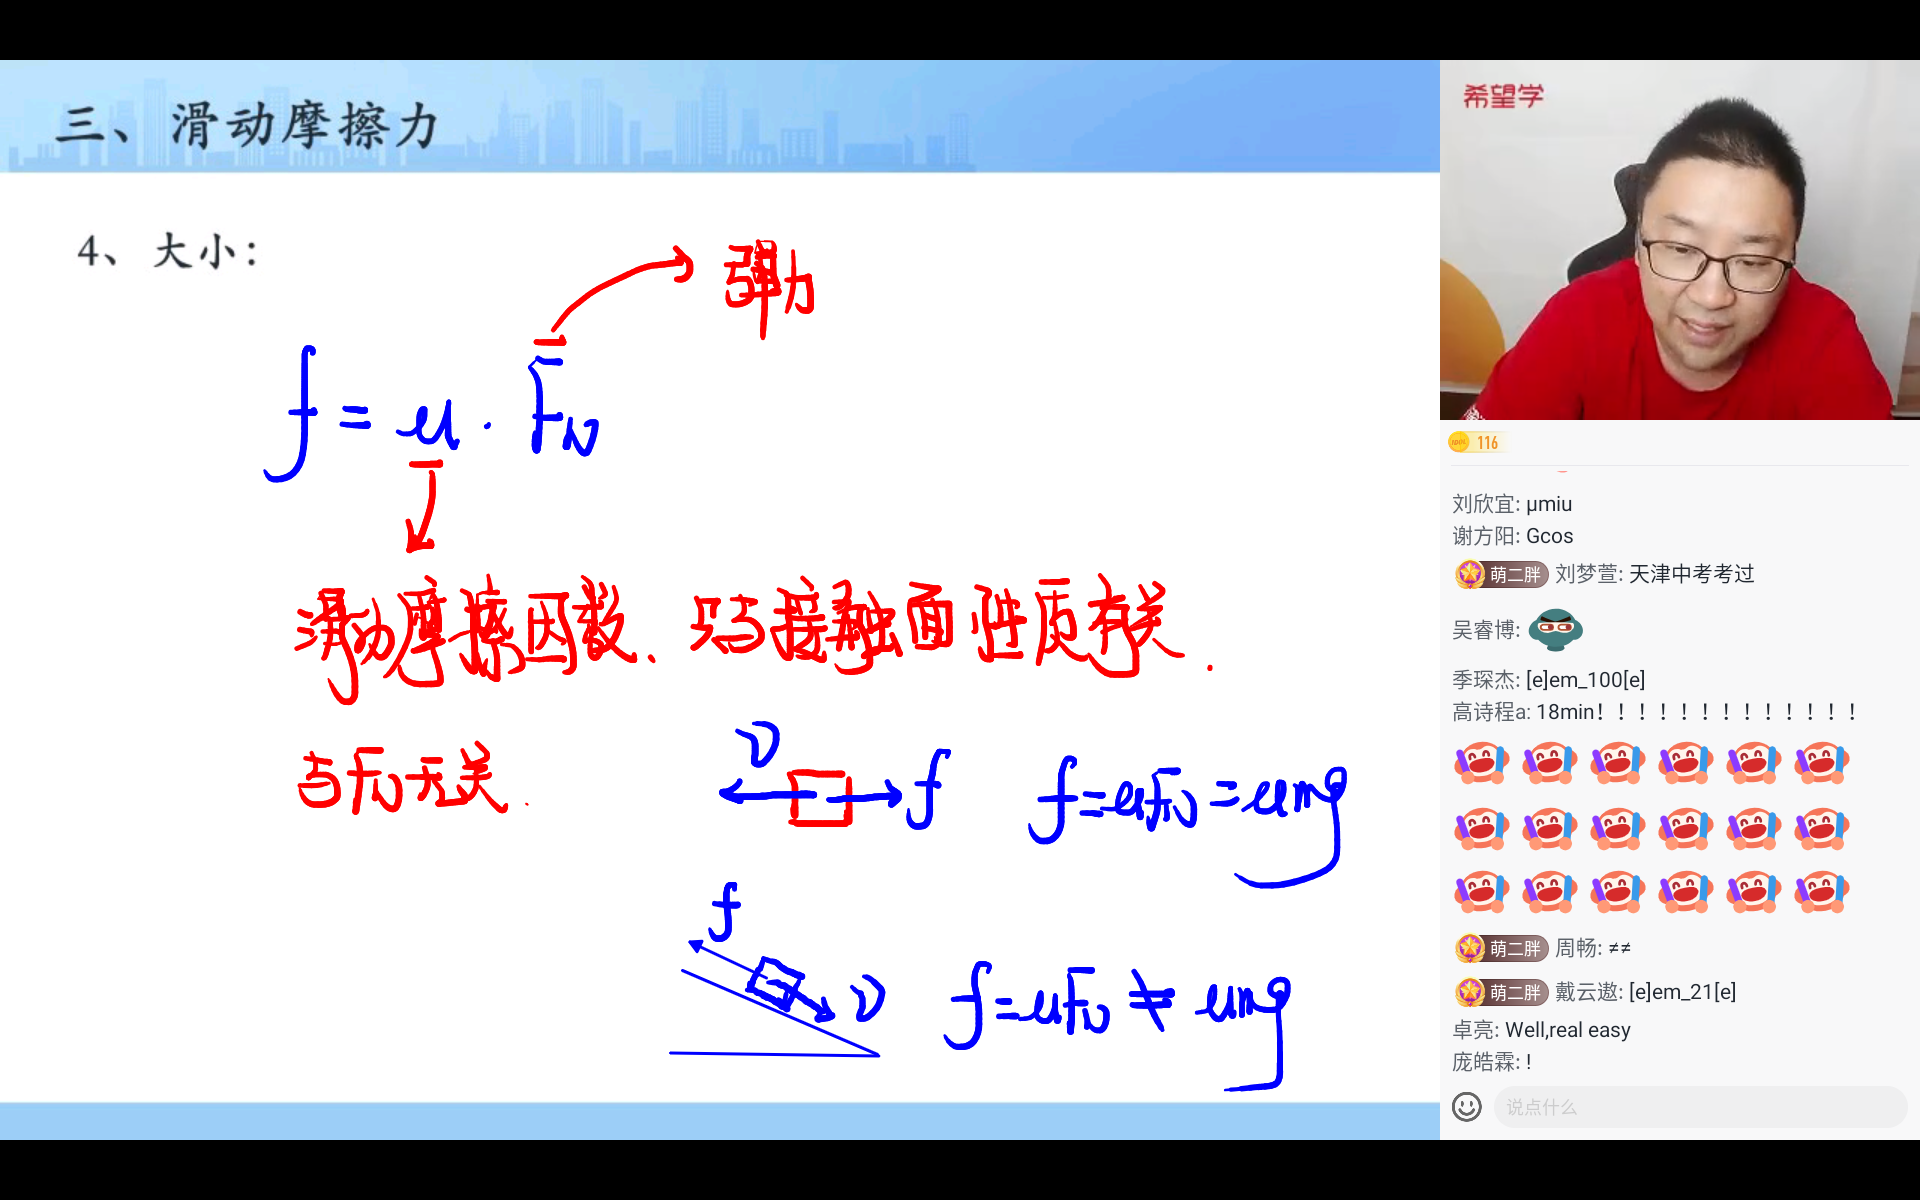 三、滑动摩擦力
4、大小：
弹力
f = μ · F_N
滑动摩擦因数、只与接触面性质有关.
与F_N无关.
v
f
f=μF_N=μmg
f
v
f=μF_N≠μmg
希望学
116
刘欣宜: μmiu
谢方阳: Gcos
萌二胖 刘梦萱: 天津中考考过
吴睿博:
季琛杰: [e]em_100[e]
高诗程a: 18min！！！！！！！！！！！！！
萌二胖 周畅: ≠≠
萌二胖 戴云遨: [e]em_21[e]
卓亮: Well,real easy
庞皓霖: !
说点什么